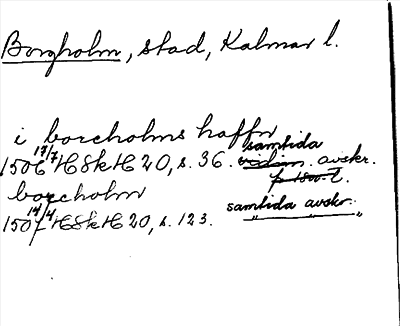 Borgholm, stad, Kalmar l.
i borcholms haffn
1506 17/7 HSkH 20, s. 36. vidim. samtida avskr.
p 1800-t.
borcholm
1507 14/4 HSkH 20, s. 123. samtida avskr.